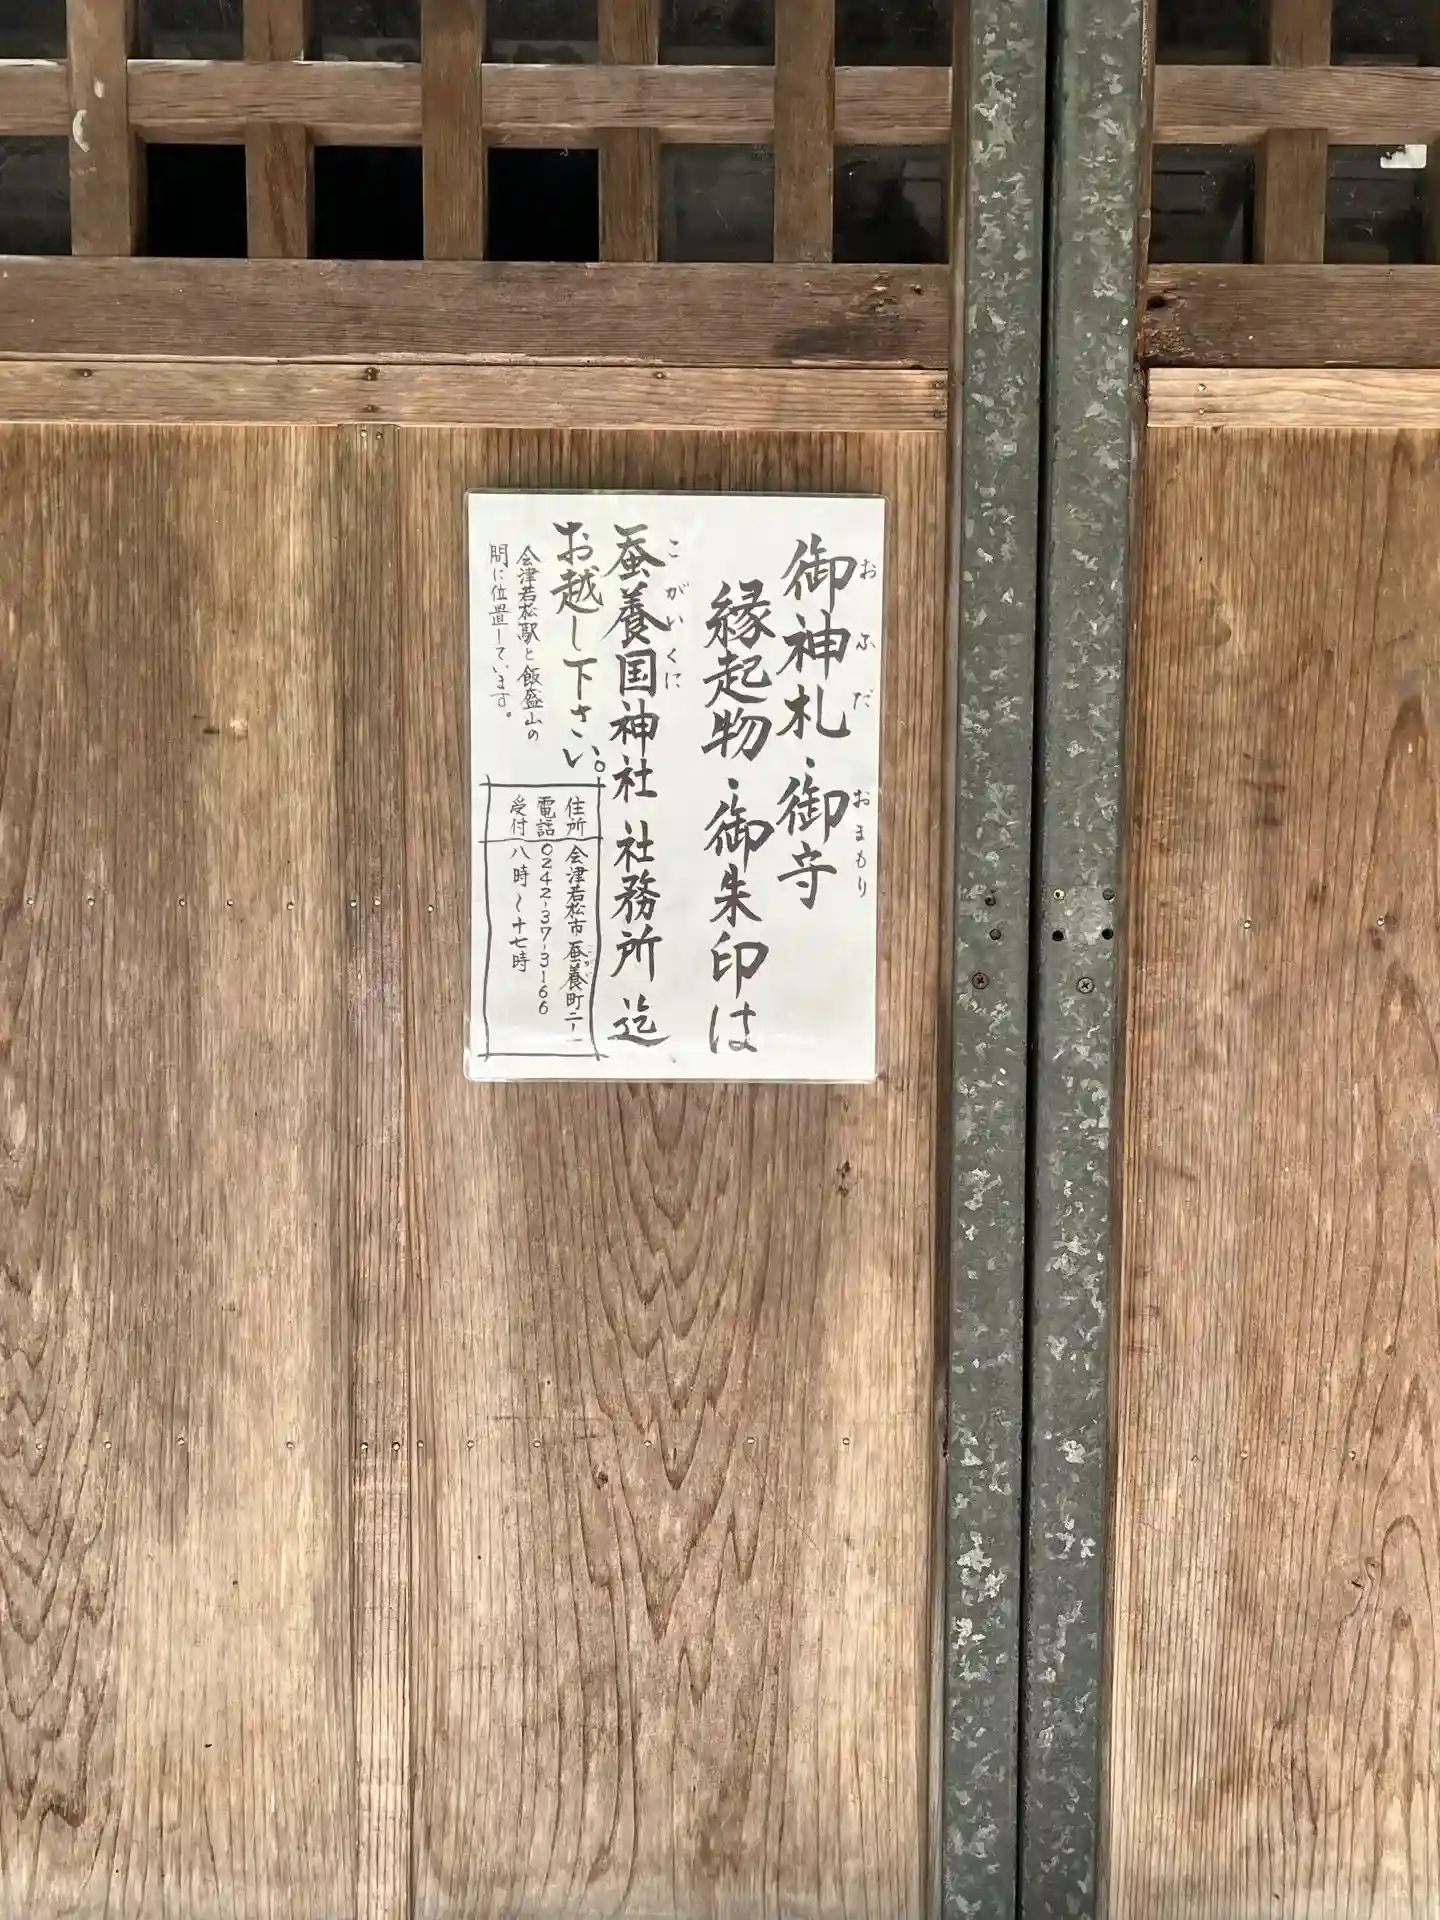 御神札・御守
おふだ
おまもり
縁起物・御朱印は
蚕養国神社 社務所 迄
こがいくに
お越し下さい。
会津若松駅と飯盛山の
間に位置しています。
住所 会津若松市蚕養町二-一
こがい
電話 0242-37-3166
受付 八時~十七時